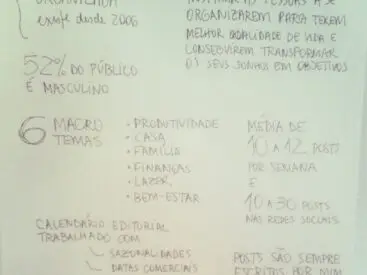 ORGANIZADA
existe desde 2006
AS PESSOAS A SE
ORGANIZAREM PARA TEREM
MELHOR QUALIDADE DE VIDA E
CONSEGUIREM TRANSFORMAR
OS SEUS SONHOS EM OBJETIVOS
52% DO PÚBLICO
É MASCULINO
6 MACRO
TEMAS
• PRODUTIVIDADE
• CASA
• FAMÍLIA
• FINANÇAS
• LAZER
• BEM-ESTAR
MÉDIA DE
10 A 12 POSTS
POR SEMANA
E
10 A 30 POSTS
NAS REDES SOCIAIS
CALENDÁRIO EDITORIAL
TRABALHADO COM
SAZONALIDADES
DATAS COMERCIAIS
POSTS SÃO SEMPRE
ESCRITOS POR MIM